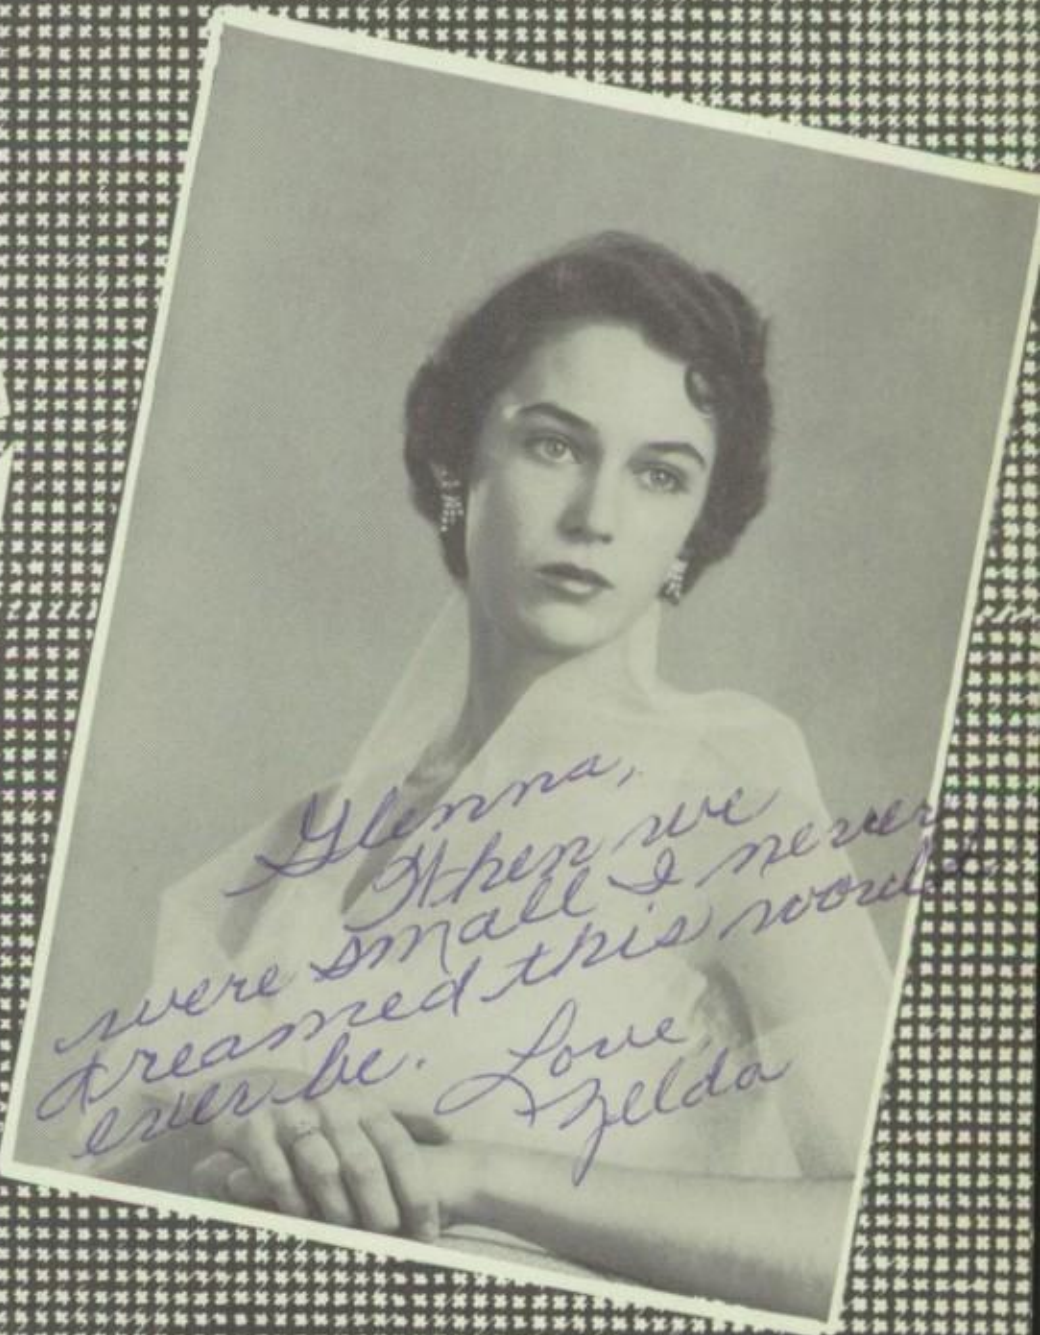 Glenna,
When we
were small I never
dreamed this would
ever be.
Love,
Zelda